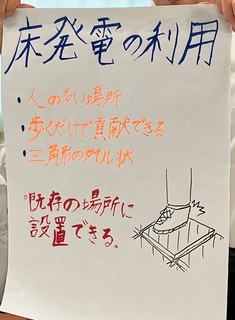 床発電の利用
・人の多い場所
・歩くだけで貢献できる
・三角形のタイル状
。既存の場所に
設置できる。